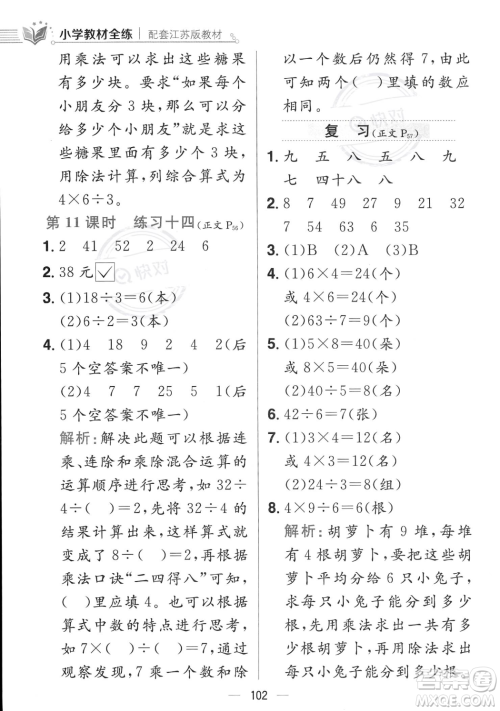 小学教材全练 配套江苏版教材
用乘法可以求出这些糖果
有多少块。要求“如果每个
小朋友分3块，可以分
给多少个小朋友？”就是求
多少块里面有多少个3块，
用除法计算，列综合算式为
4×6÷3。
第11课时 练习十四(正文P56)
1. 2 41 52 2 24 6
2. 38元 ✓
3. (1)18÷3=6(本)
(2)6÷2=3(本)
4. (1)4 2 4 4 8 2(后
5个空答案不唯一)
(2)4 7 7 25 1(后
5个空答案不唯一)
解析：解决此题可以根据连
乘、连除和乘除混合运算的
运算顺序进行思考。如32÷
4÷( )=2，先将32÷4的
结果计算出来，这样算式就
变成了8÷( )=2，再根据
乘法口诀“二四得八”可以
填出( )里的数。也可以根
据算式中数的特点进行思考。
如7×( )÷( )=7，通过
观察发现，7乘一个数和除
以一个数后仍然得7，说明
这两个( )里填的数应
相同。
复 习(正文P57)
1. 九 五 八 五 八 九 九
七 四十八 八
2. 9 8 7 8 2 9 8
7 54 63
3. (1)B (2)A (3)B
4. (1)6×4=24(个)
或4×6=24(个)
(2)63÷7=9(个)
5. (1)5×8=40(棵)
或8×5=40(棵)
(2)40÷5=8(棵)
6. 42÷6=7(张)
7. (1)3×4=12(个)
或4×3=12(个)
(2)24÷3=8(组)
8. 4×9÷6=6(根)
解析：胡萝卜有9堆，每堆
有4根胡萝卜，可以求出胡
萝卜平均分给6只小兔子，
求每只小兔子能分到多少
根，先用乘法求出一共有多
少根胡萝卜，再用除法求出
每只小兔子能分到多少根。
102